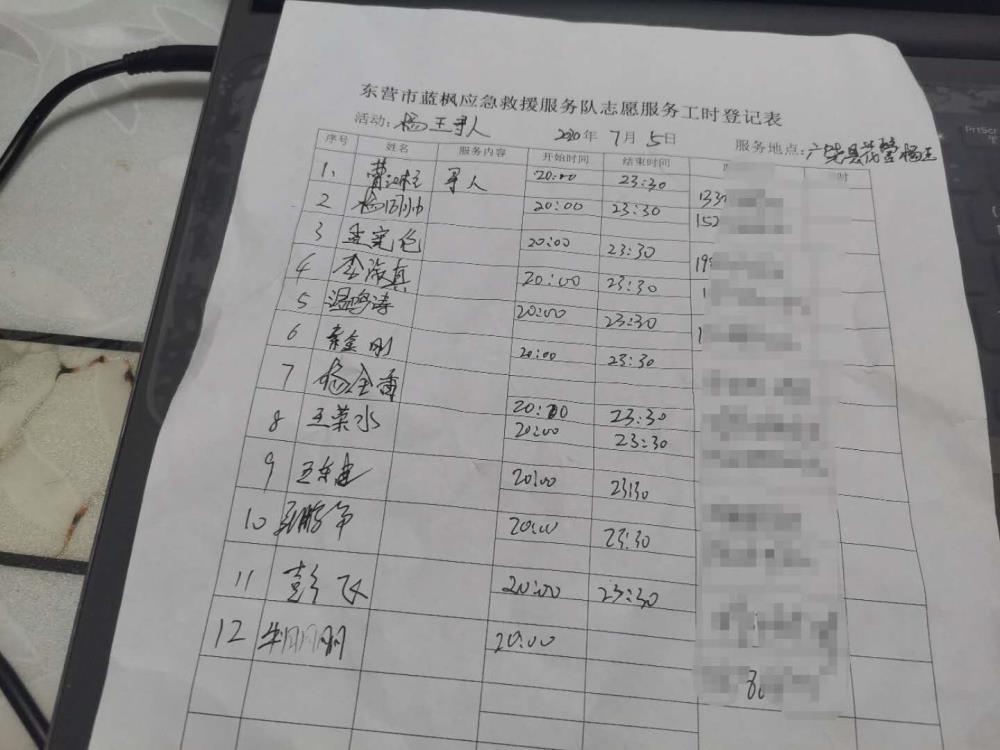 东营市蓝枫应急救援服务队志愿服务工时登记表
活动：杨王寻人 2020年 7月 5日 服务地点：广饶县
序号 姓名 服务内容 开始时间 结束时间 时
1、 寻人 20:00 23:30 133
2 20:00 23:30 152
3 孟宪伦 20:00 23:30 19
4 李海真 20:00 23:30 1
5 温鸣涛 20:00 23:30 1
6 秦金刚 20:00 23:30
7 杨全香 20:00 23:30
8 王荣水 20:00 23:30
9 20:00 23:30
10 20:00 23:30
11 彭飞 20:00 23:30
12 20:00